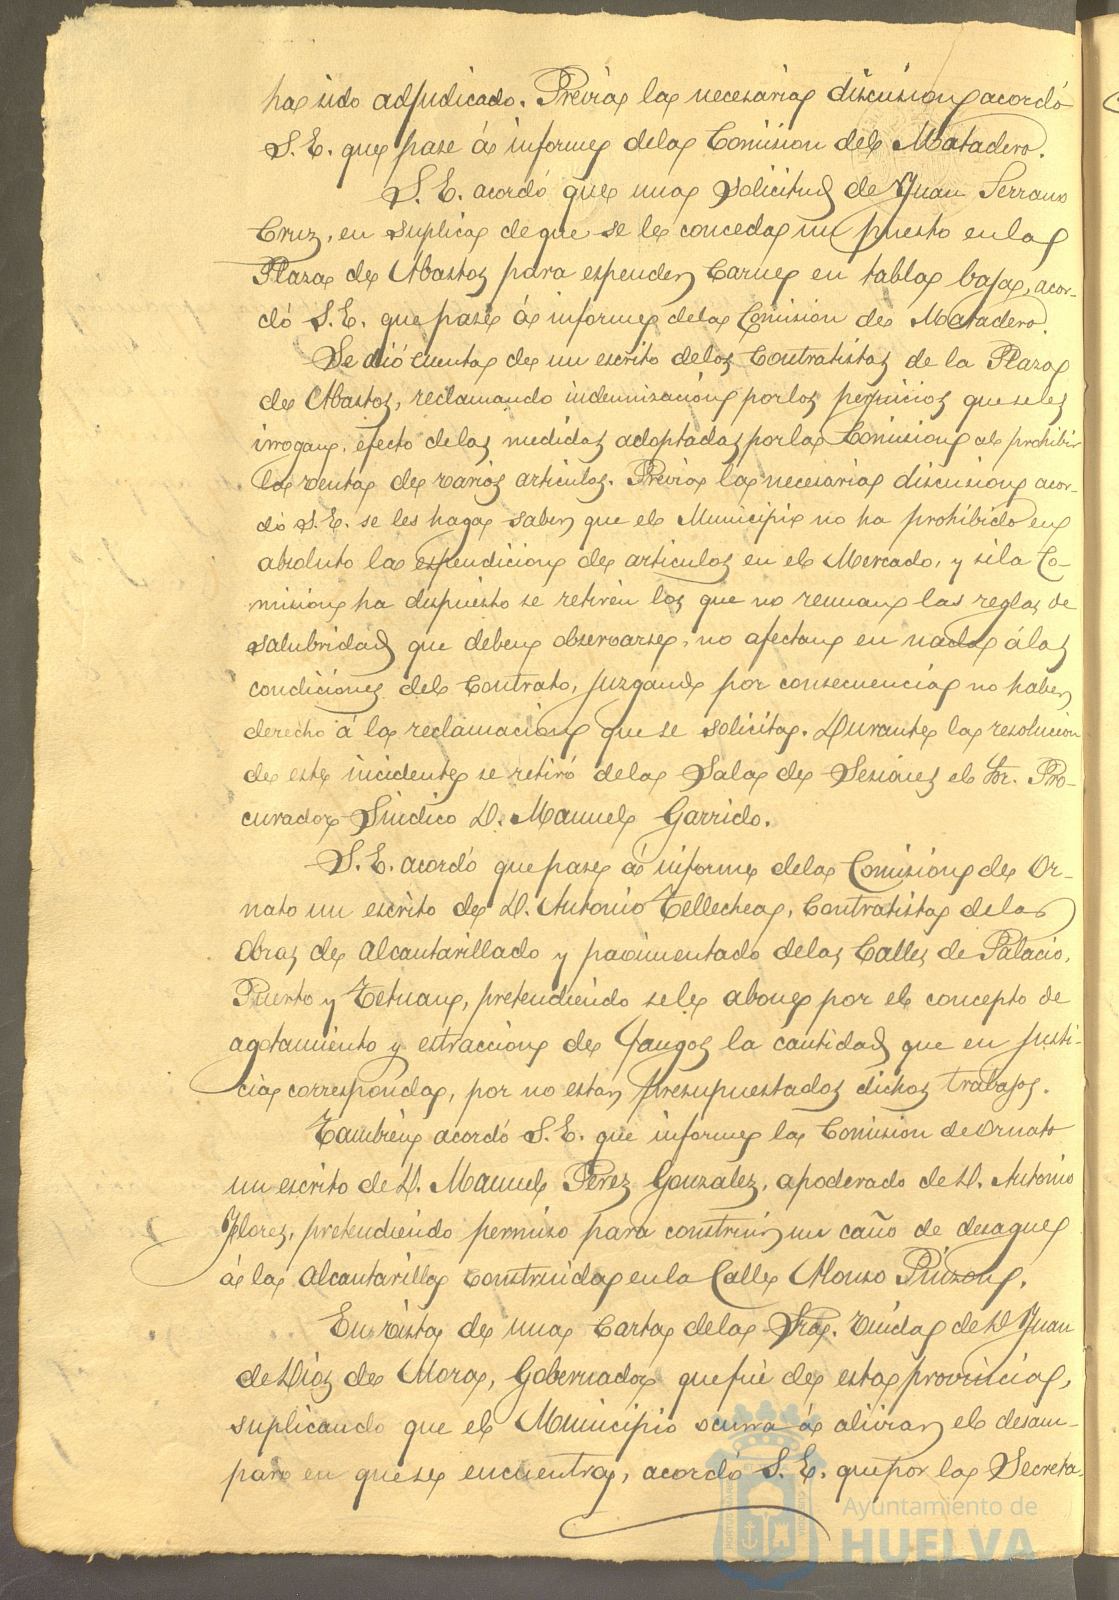 ha sido adjudicado. Previa la necesaria discusion acordó
S. E. que pase á informe de la Comision del Matadero.
S. E. acordó que una solicitud de Juan Serrano
Cruz, en suplica de que se le conceda un puesto en la
Plaza de Abastos para espender Carnes en tabla baja, acor-
dó S. E. que pase á informe de la Comision de Matadero.
Se dió cuenta de un escrito de los Contratistas de la Plaza
de Abastos, reclamando indemnizacion por los perjuicios que se les
irrogan, efecto de las medidas adoptadas por la Comision al prohibir
la venta de varios articulos. Previa la necesaria discusion acor-
dó S. E. se les haga saber que el Municipio no ha prohibido en
absoluto la espendicion de articulos en el Mercado, y si la Co-
mision ha dispuesto se retiren los que no reunan las reglas de
salubridad que deben observarse, no afectan en nada á las
condiciones del Contrato, juzgando por consecuencia no haber
derecho á la reclamacion que se solicita. Durante la resolucion
de este incidente se retiró de la Sala de Sesiones el Sr. Pro-
curador Sindico D. Manuel Garrido.
S. E. acordó que pase á informe de la Comision de Or-
nato un escrito de D. Antonio Tellechea, Contratista de las
obras de Alcantarillado y pavimentado de las Calles de Palacio,
Puerto y Tetuan, pretendiendo se le abone por el concepto de
agotamiento y estraccion de fangos la cantidad que en justi-
cia corresponda, por no estar presupuestados dichos trabajos.
Tambien acordó S. E. que informe la Comision de Ornato
un escrito de D. Manuel Pérez Gonzalez, apoderado de D. Antonio
Flores, pretendiendo permiso para construir un caño de desague
á la Alcantarilla construida en la Calle Alonso Pinzon.
En vista de una Carta de la Sra. Viuda de D. Juan
de Dios de Mora, Gobernador que fué de esta provincia,
suplicando que el Municipio ocurra á aliviar el desam-
paro en que se encuentra, acordó S. E. que por la Secreta-
Ayuntamiento de
HUELVA